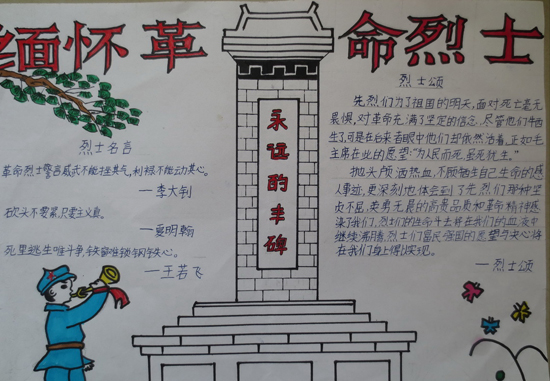 缅怀革命烈士
烈士名言
革命烈士警言威武不能挫其气,利禄不能动其心。
—李大钊
砍头不要紧,只要主义真。
—夏明翰
死里逃生唯斗争,铁窗难锁钢铁心。
—王若飞
永远的丰碑
烈士颂
先烈们为了祖国的明天,面对死亡毫无
畏惧,对革命充满了坚定的信念,尽管他们牺
牲了,可是在后来者眼中他们却依然活着。正如毛
主席在此的愿望:“为人民而死,虽死犹生。”
抛头颅洒热血,不顾牺牲自己生命的感
人事迹,更深刻地体会到了先烈们那种坚
贞不屈,英勇无畏的高贵品质和革命精神感
染了我们,烈士们的生命将在我们的血液中
继续沸腾,烈士们富民强国的愿望与决心将
在我们身上得以实现。
—烈士颂